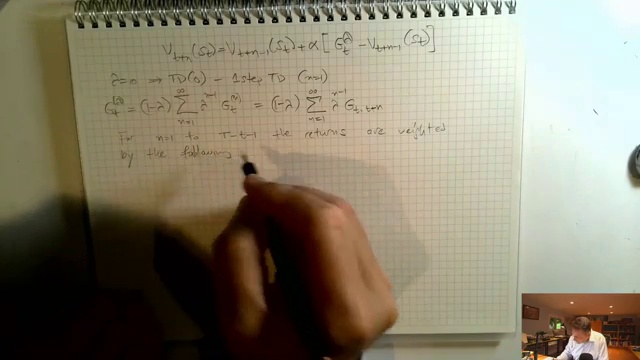 V_{t+n}(S_t) = V_{t+n-1}(S_t) + α[G_t^λ − V_{t+n-1}(S_t)]
λ=0 ⇒ TD(0) – 1 step TD (n=1)
G_t^{(λ)} = (1-λ) ∑_{n=1}^{∞} λ^{n-1} G_t^{(n)} = (1-λ) ∑_{n=1}^{∞} λ^{n-1} G_{t,t+n}
For n=1 to T-t-1 the returns are weighted
by the following